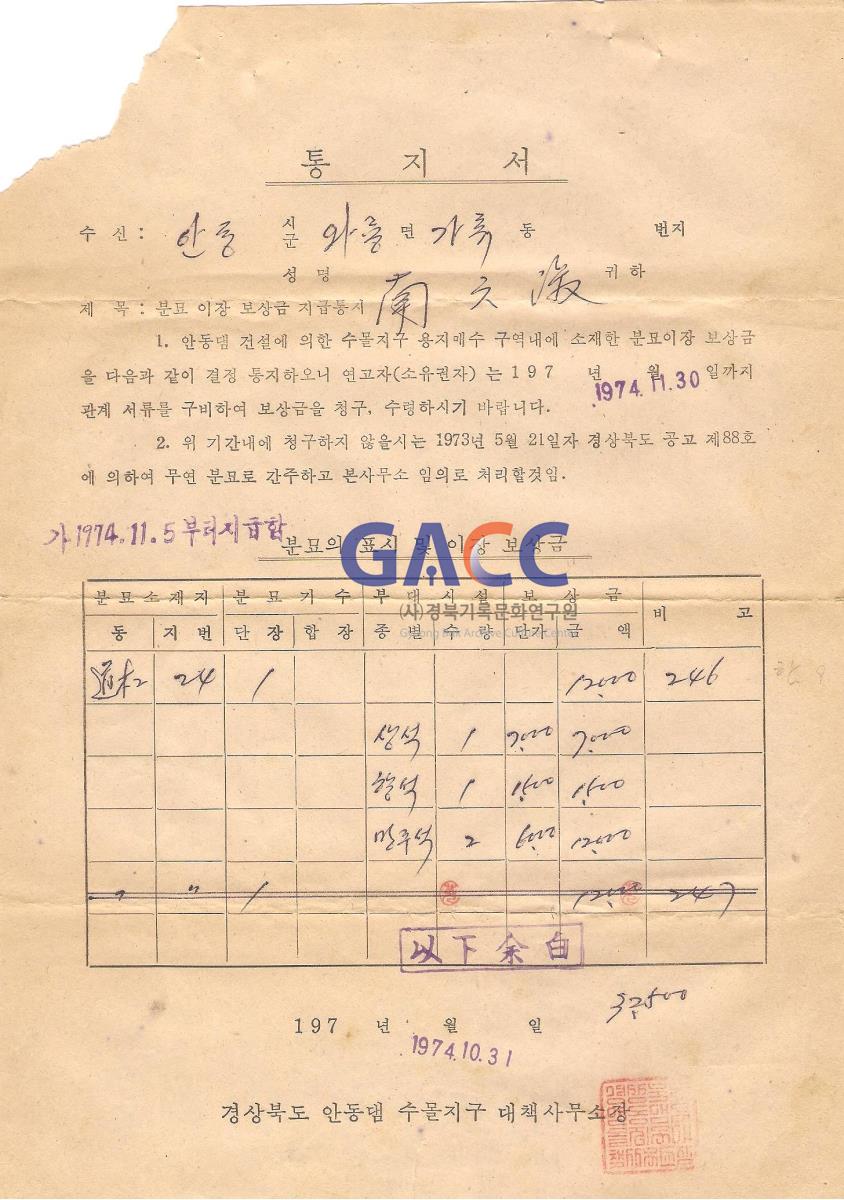 통 지 서
수 신 : 안동 시 군 와룡 면 가류 동 번지
성 명 南 귀 하
제 목 : 분묘 이장 보상금 지급통지
1. 안동댐 건설에 의한 수몰지구 용지매수 구역내에 소재한 분묘이장 보상금
을 다음과 같이 결정 통지하오니 연고자(소유권자) 는 197 년 월 일까지
1974.11.30
관계 서류를 구비하여 보상금을 청구, 수령하시기 바랍니다.
2. 위 기간내에 청구하지 않을시는 1973년 5월 21일자 경상북도 공고 제88호
에 의하여 무연 분묘로 간주하고 본사무소 임의로 처리할것임.
가 1974.11.5 부터 지급함
분묘의 표시 및 이장 보상금
GACC
(사)경북기록문화연구원
Gyeong Buk Archive Culture Center
분묘소재지 분묘기수 부대시설 보상금 비 고
동 지번 단장 합장 종별 수량 단가 금액
24 1 12,000 246
상석 1 7,000 7,000
향석 1 1,500 1,500
망주석 2 6,000 12,000
〃 〃 1 12,000 247
以下余白
197 년 월 일
1974.10.31
경상북도 안동댐 수몰지구 대책사무소장